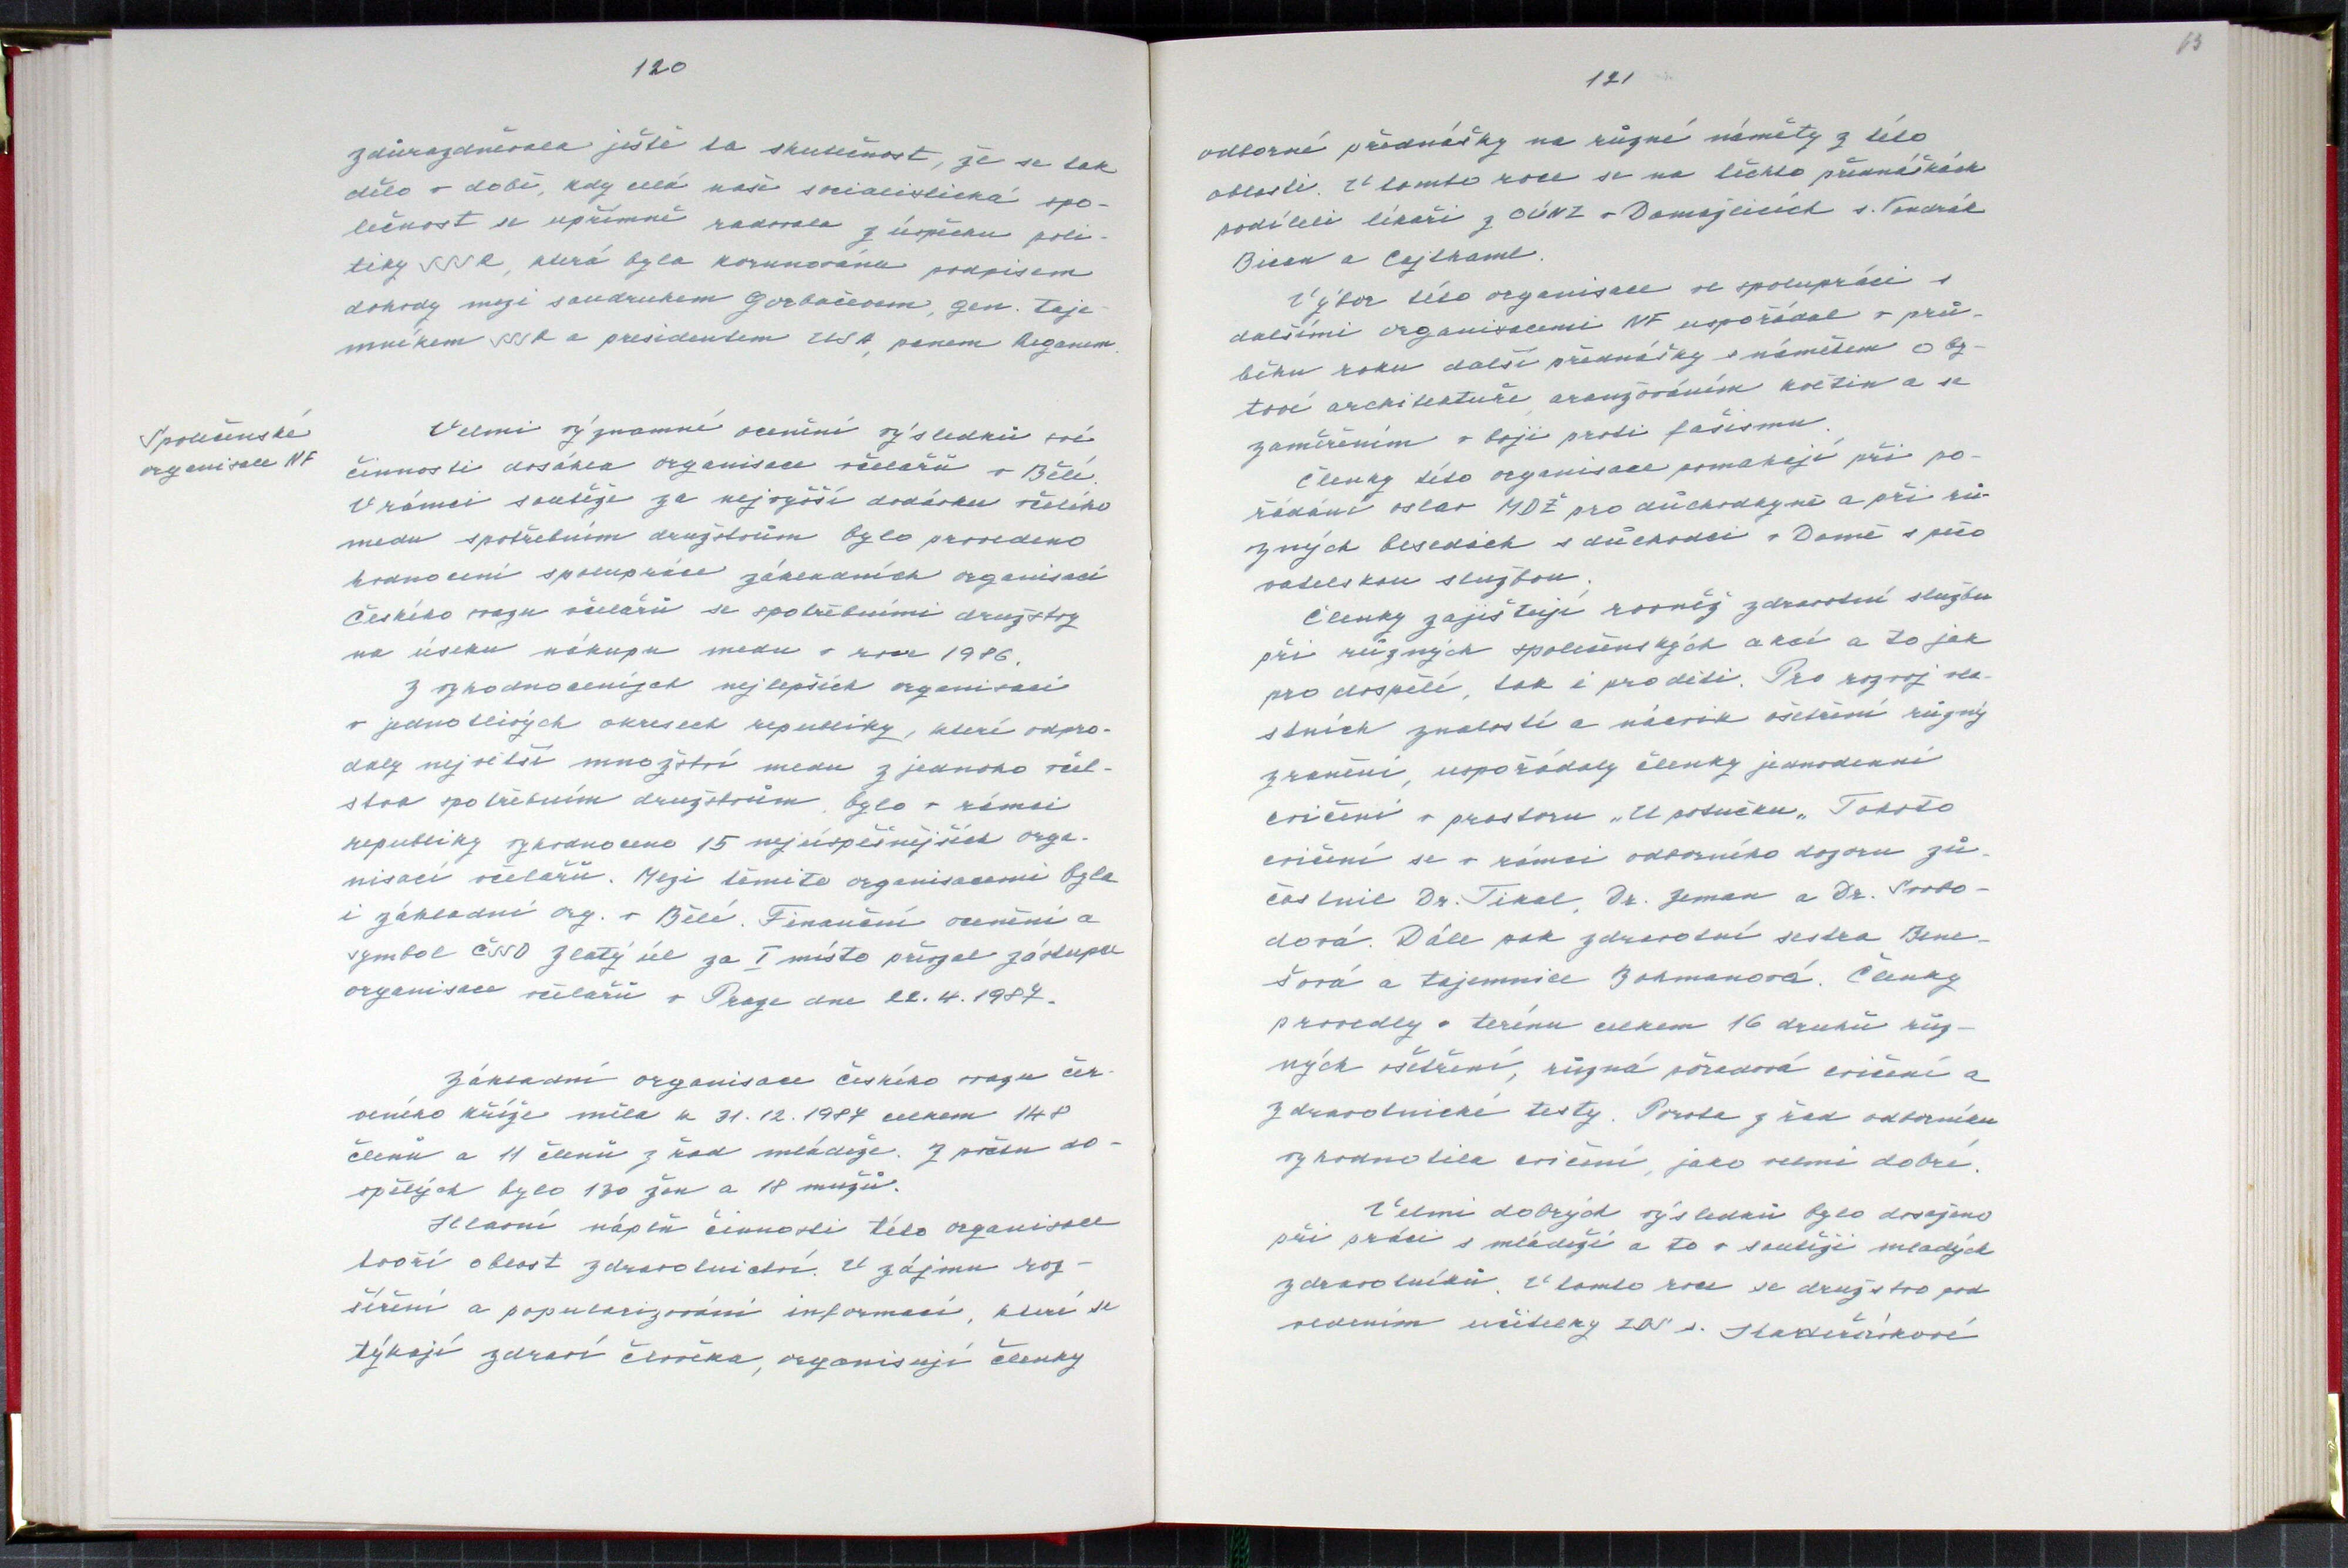 120
zdůrazdněvala ještě ta skutečnost, že se tak
dělo v době, kdy celá naše socialistická spo-
lečnost se upřímně radovala z úspěchu poli-
tiky SSSR, která byla korunována podpisem
dohody mezi soudruhem Gorbačevem, gen. taje-
mníkem SSSR a presidentem USA, panem Reganem.
Společenské
organisace NF
Velmi významné ocenění výsledků své
činnosti dosáhla organisace včelařů v Bělé.
V rámci soutěže za nejvyšší dodávku včelího
medu spotřebním družstvům bylo provedeno
hodnocení spolupráce základních organisací
Českého svazu včelařů se spotřebními družstvy
na úseku nákupu medu v roce 1986.
Z vyhodnocených nejlepších organisací
v jednotlivých okresech republiky, které odpro-
daly největší množství medu z jednoho včel-
stva spotřebním družstvům, bylo v rámci
republiky vyhodnoceno 15 nejúspěšnějších orga-
nisací včelařů. Mezi těmito organisacemi byla
i základní org. v Bělé. Finanční ocenění a
symbol ČSSD zlatý úl za I místo přivzal zástupce
organisace včelařů v Praze dne 22.4.1987.
Základní organisace českého svazu čer-
veného kříže měla k 31.12.1987 celkem 148
členů a 11 členů z řad mládeže. Z počtu do-
spělých bylo 130 žen a 18 mužů.
Hlavní náplň činnosti této organisace
tvoří oblast zdravotnictví. V zájmu roz-
šíření a popularizování informací, které se
týkají zdraví člověka, organisují členky
63
121
odborné přednášky na různé náměty z této
oblasti. V tomto roce se na těchto přednáškách
podíleli lékaři z OÚNZ v Domažlicích s. Vondrák
Bican a Cajthaml.
Výbor této organisace ve spolupráci s
dalšími organisacemi NF uspořádal v prů-
běhu roku další přednášky s námětem o by-
tové architektuře, aranžováním květin a se
zaměřením v boji proti fašismu.
Členky této organisace pomahají při po-
řádání oslav MDŽ pro důchodkyně a při rů-
zných besedách s důchodci v Domě s pečo
vatelskou službou.
Členky zajišťují rovněž zdravotní službu
při různých společenských akcí a to jak
pro dospělé, tak i pro děti. Pro rozvoj vla-
stních znalostí a nácvik ošetření různý
zranění, uspořádaly členky jednodenní
cvičení v prostoru „U potučku„ Tohoto
cvičení se v rámci odborného dozoru zů-
častnil Dr. Tikal, Dr. Zeman a Dr. Svobo-
dová. Dále pak zdravotní sestra Bene-
šová a tajemnice Bohmanová. Členky
provedly v terénu celkem 16 druhů růz-
ných ošetření, různá pořadová cvičení a
zdravotnické testy. Porota z řad odborníku
vyhodnotila cvičení, jako velmi dobré.
Velmi dobrých výsledků bylo dosaženo
při práci s mládeží a to v soutěži mladých
zdravotníků. V tomto roce se družstvo pod
vedením učitelky ZDŠ s.